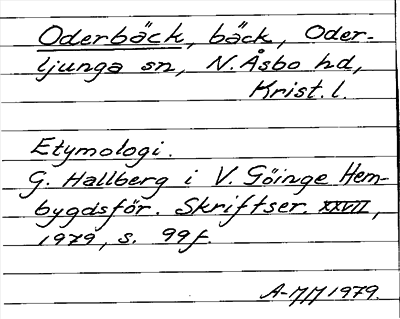 Oderbäck, bäck, Oder-
ljunga sn, N. Åsbo hd,
Krist. l.
Etymologi.
G. Hallberg i V. Göinge Hem-
bygdsför. Skriftser. XXVII,
1979, s. 99f.
A-MM 1979.